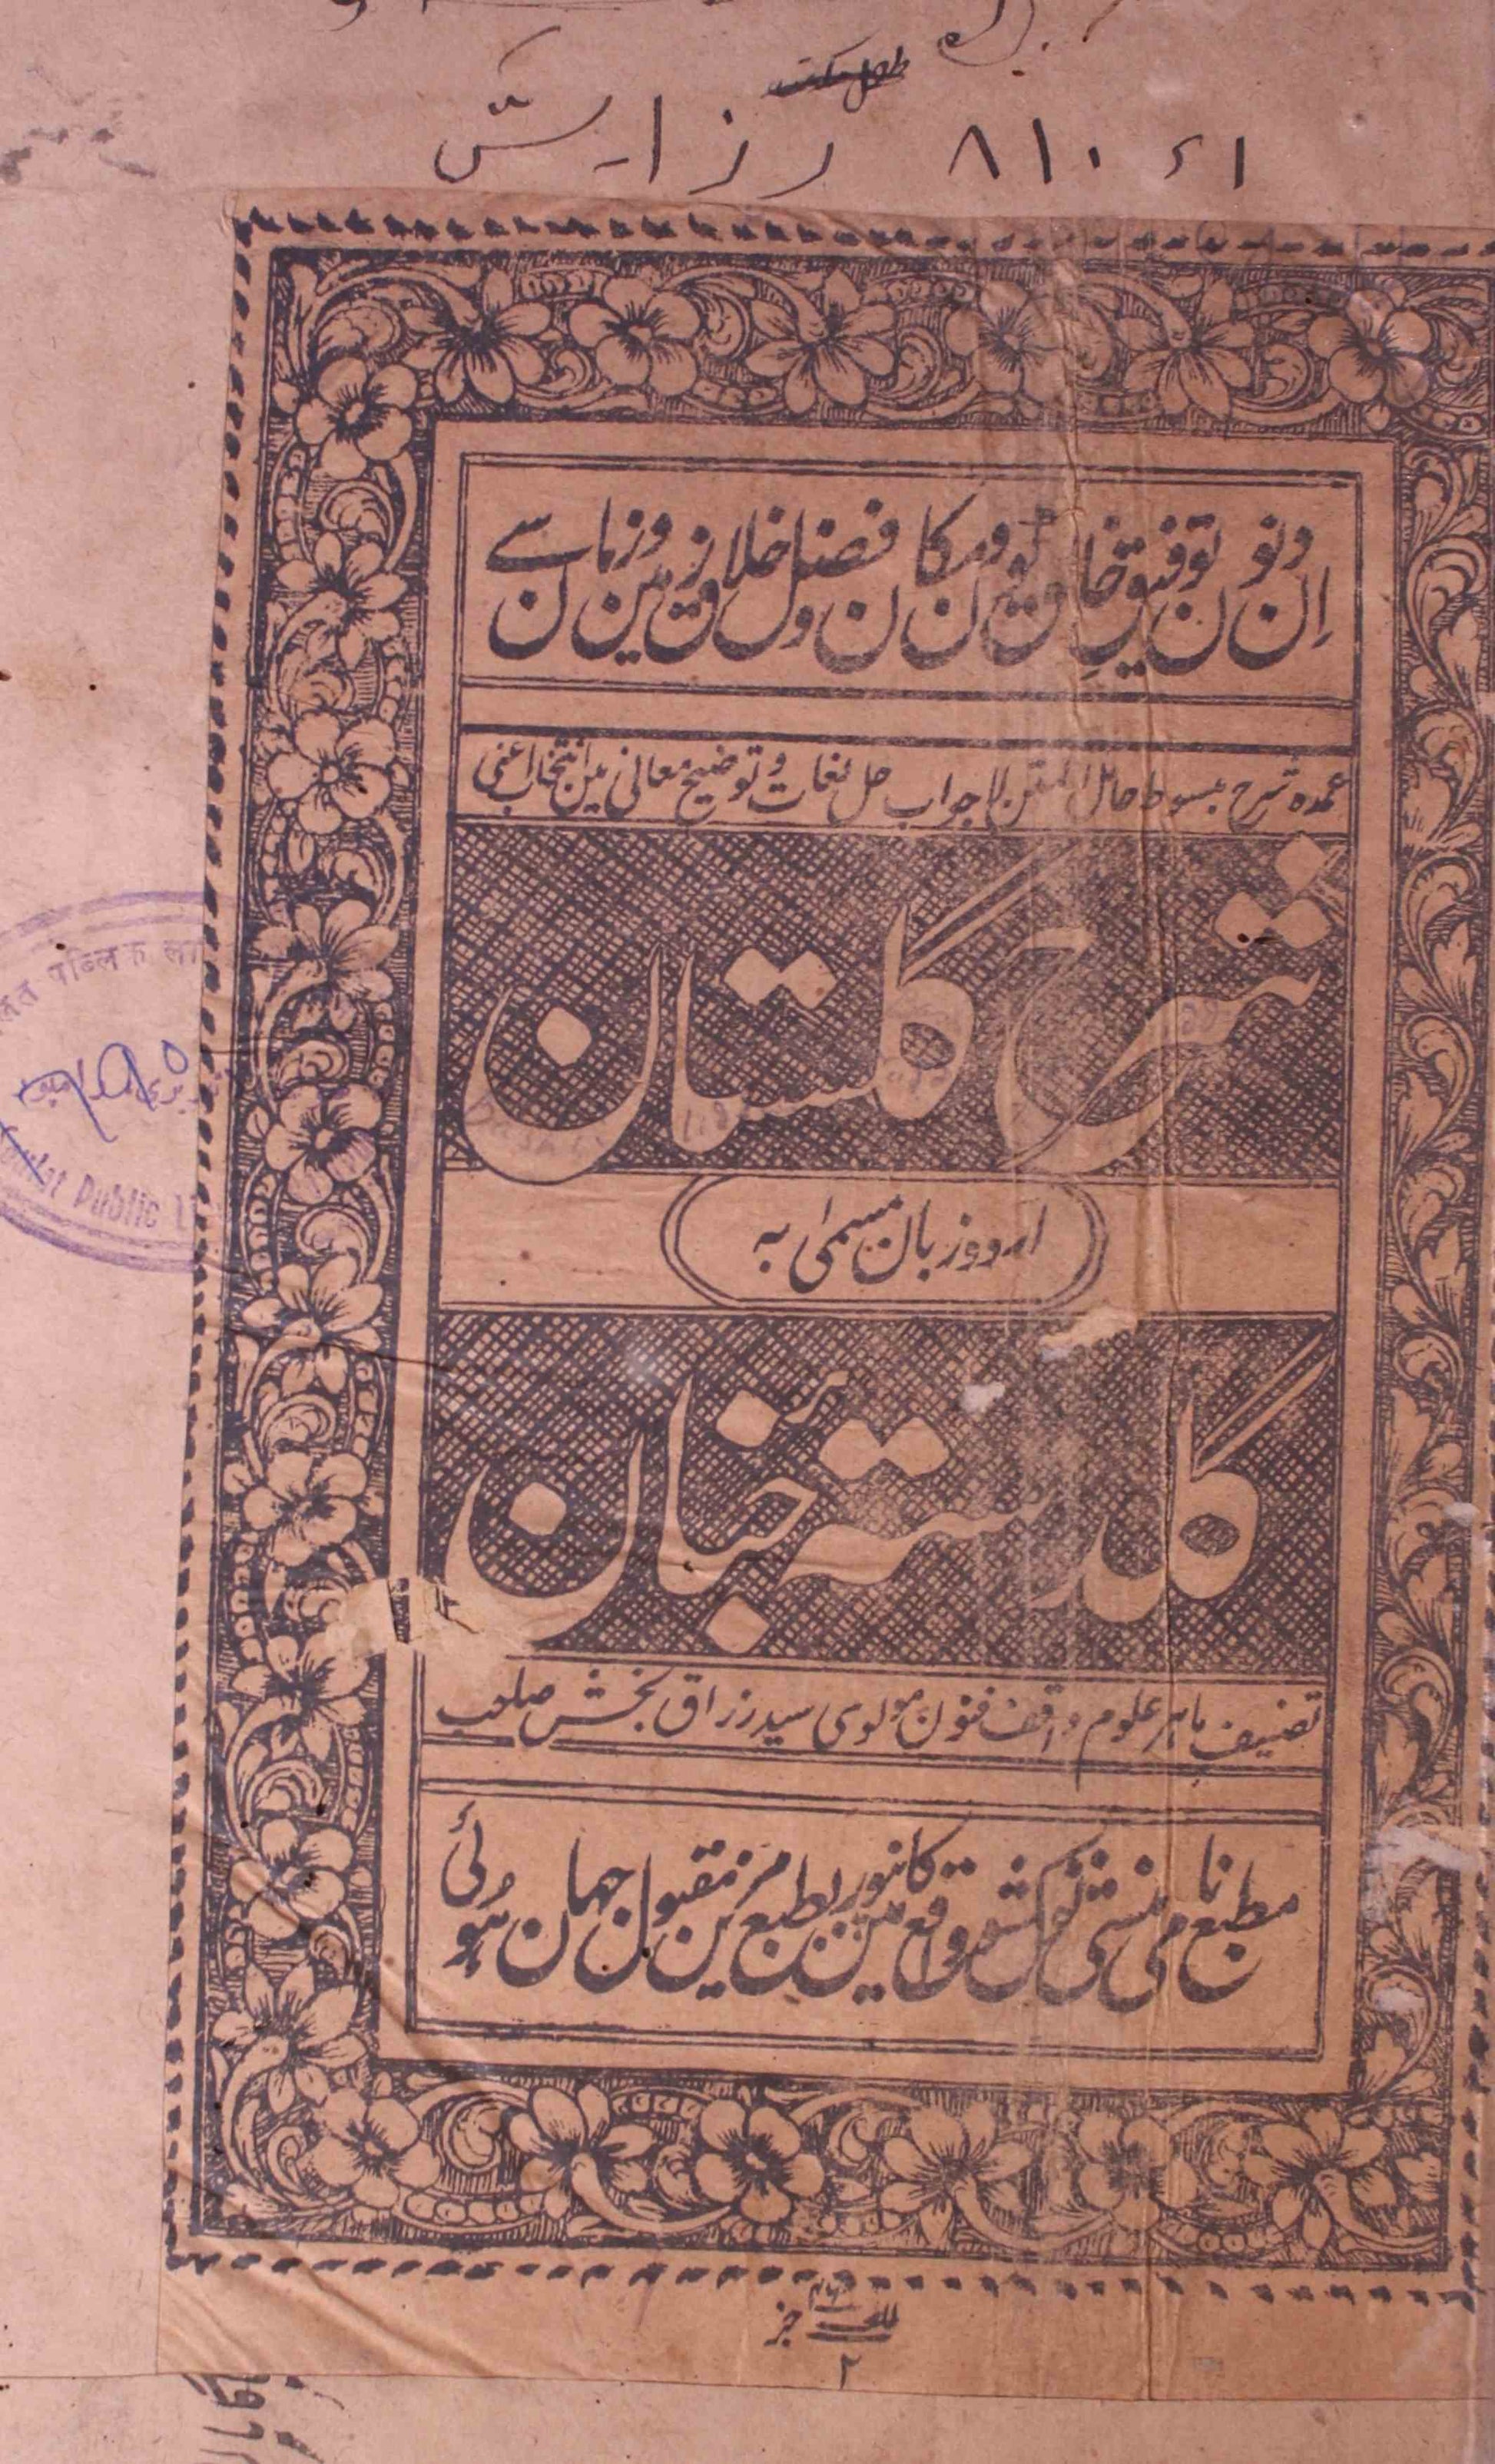 ۸۱۰ء۱
ان دنون توفیق خالق کون و مکان و فضل خلاق زمین و زمان سے
عمدہ شرح مبسوط حامل المتن لاجواب حل لغات و توضیح معانی مین انتخاب اعنی
شرح گلستان
اردو زبان مسمیٰ بہ
گلدستہ خنبان
تصنیف ماہر علوم واقف فنون مولوی سید رزاق بخش صاحب
مطبع نامی منشی نولکشور واقع کانپور مین بطبع مزین مقبول جہان ہوئی
جز
۲
पब्लिक ला
Public Li